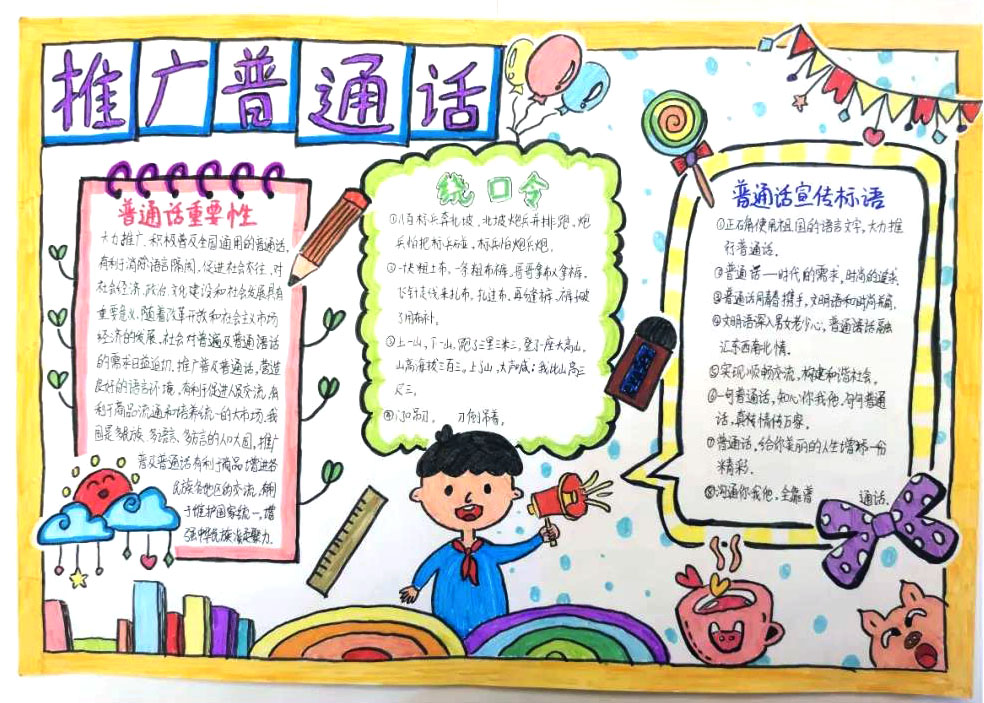 推广普通话
普通话重要性
大力推广、积极普及全国通用的普通话，
有利于消除语言隔阂，促进社会交往，对
社会经济、政治、文化建设和社会发展具有
重要意义。随着改革开放和社会主义市场
经济的发展，社会对普遍及普通话
的需求日益迫切。推广普及普通话，营造
良好的语言环境，有利于促进人员交流，有
利于商品流通和培养统一的大市场。我
国是多民族、多语言、多方言的人口大国，推广
普及普通话有利于商品增进各
民族各地区的交流，
于维护国家统一，增
强中华民族凝聚力。
绕口令
①八百标兵奔北坡，北坡炮兵并排跑，炮
兵怕把标兵碰，标兵怕炮兵炮。
②一块粗土布，一条粗布裤，哥哥拿布又拿裤，
飞针走线来扎布，
了用布补。
③上一山，下一山，跑了三里三米三，登了一座大高山，
山高海拔三百三。上了山，大声喊：我比山高三
尺三。
④
普通话宣传标语
①正确使用祖国的语言文字，大力推
行普通话。
②普通话——时代的需求，时尚的追求
③普通话同青春携手，文明语和时尚并肩。
④文明语深入男女老少心，普通话融
汇东西南北情。
⑤实现顺畅交流，构建和谐社会。
⑥一句普通话，知心你我他，句句普通
话，真传情传万家。
⑦普通话，给你美丽的人生增添一份
精彩。
⑧沟通你我他，全靠普 通话。